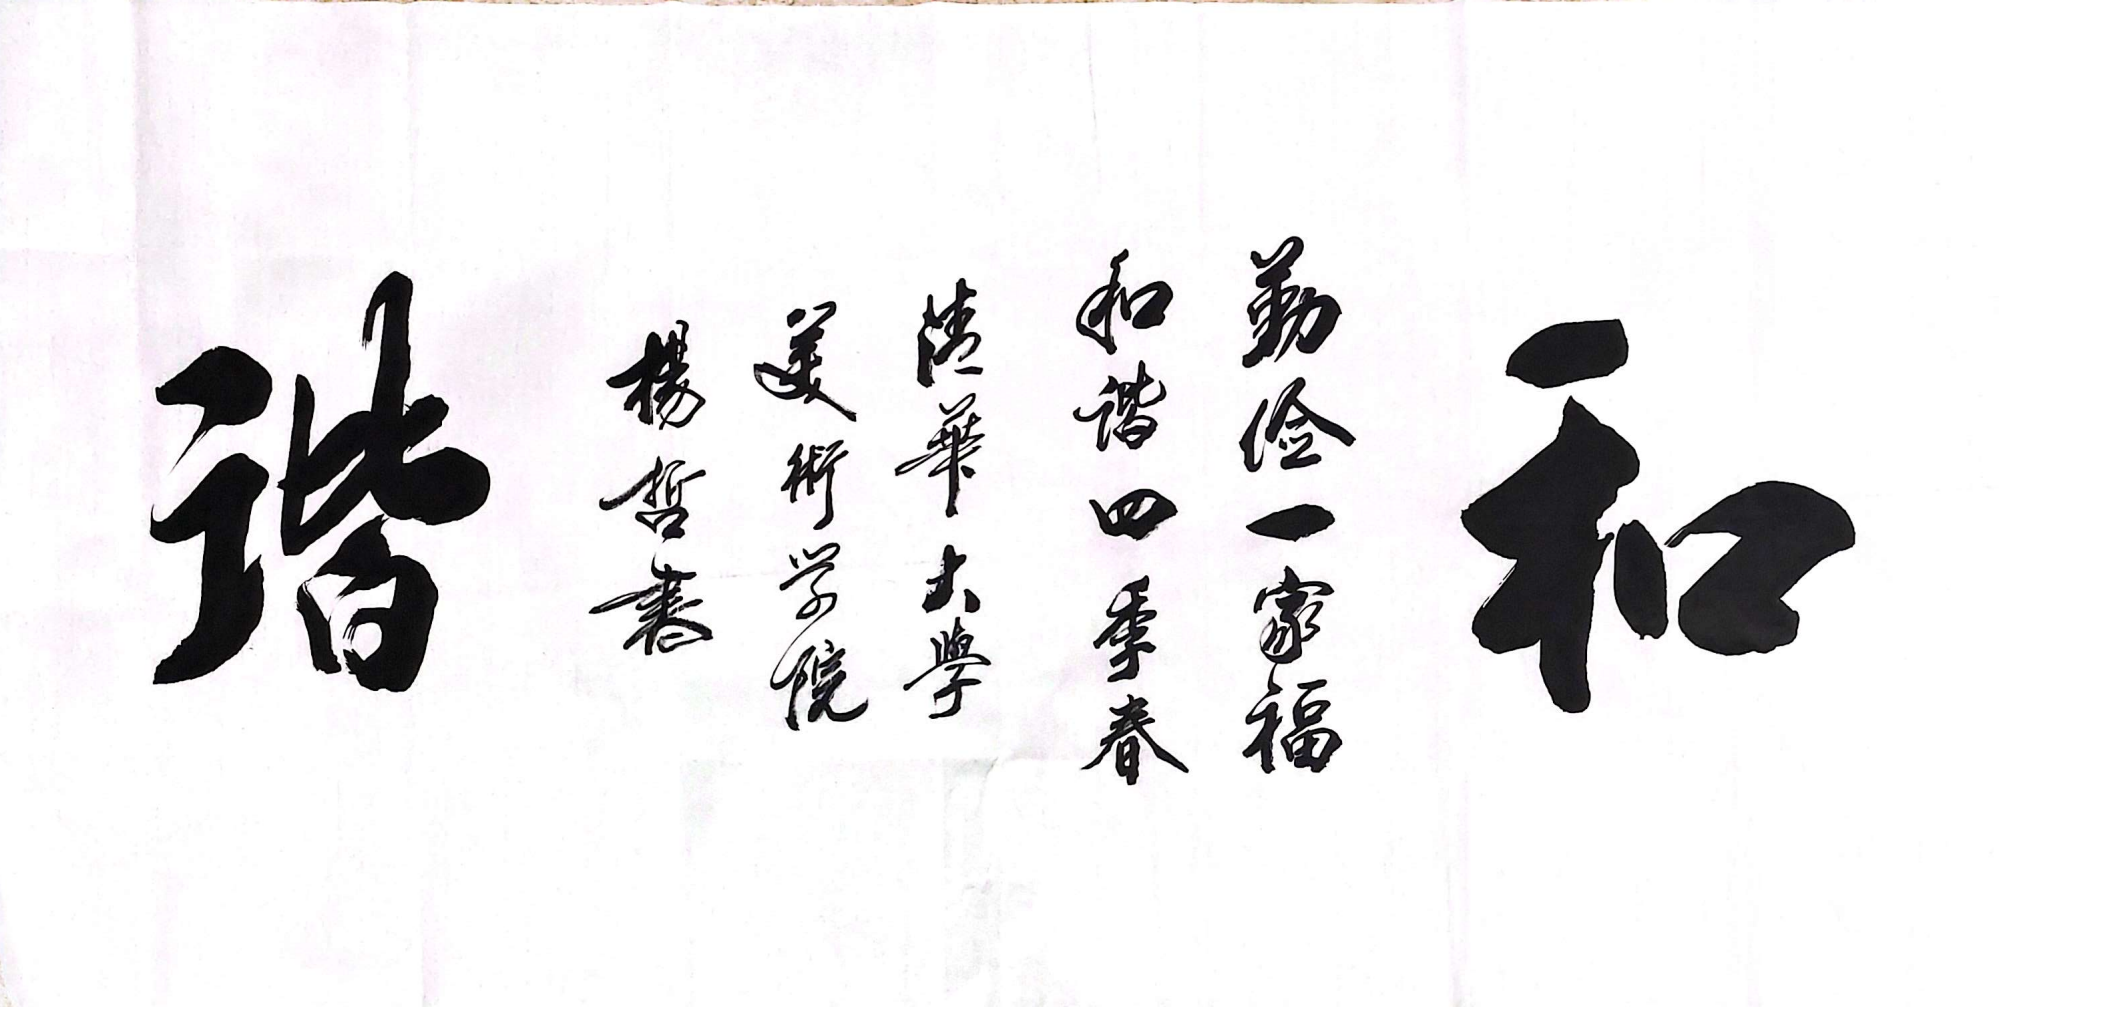 和
勤俭一家福
和谐四季春
清華大學
美術学院
楊哲書
谐